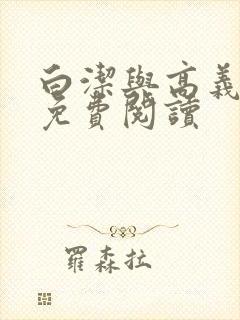 白潔與高義
免費閱讀
羅森拉